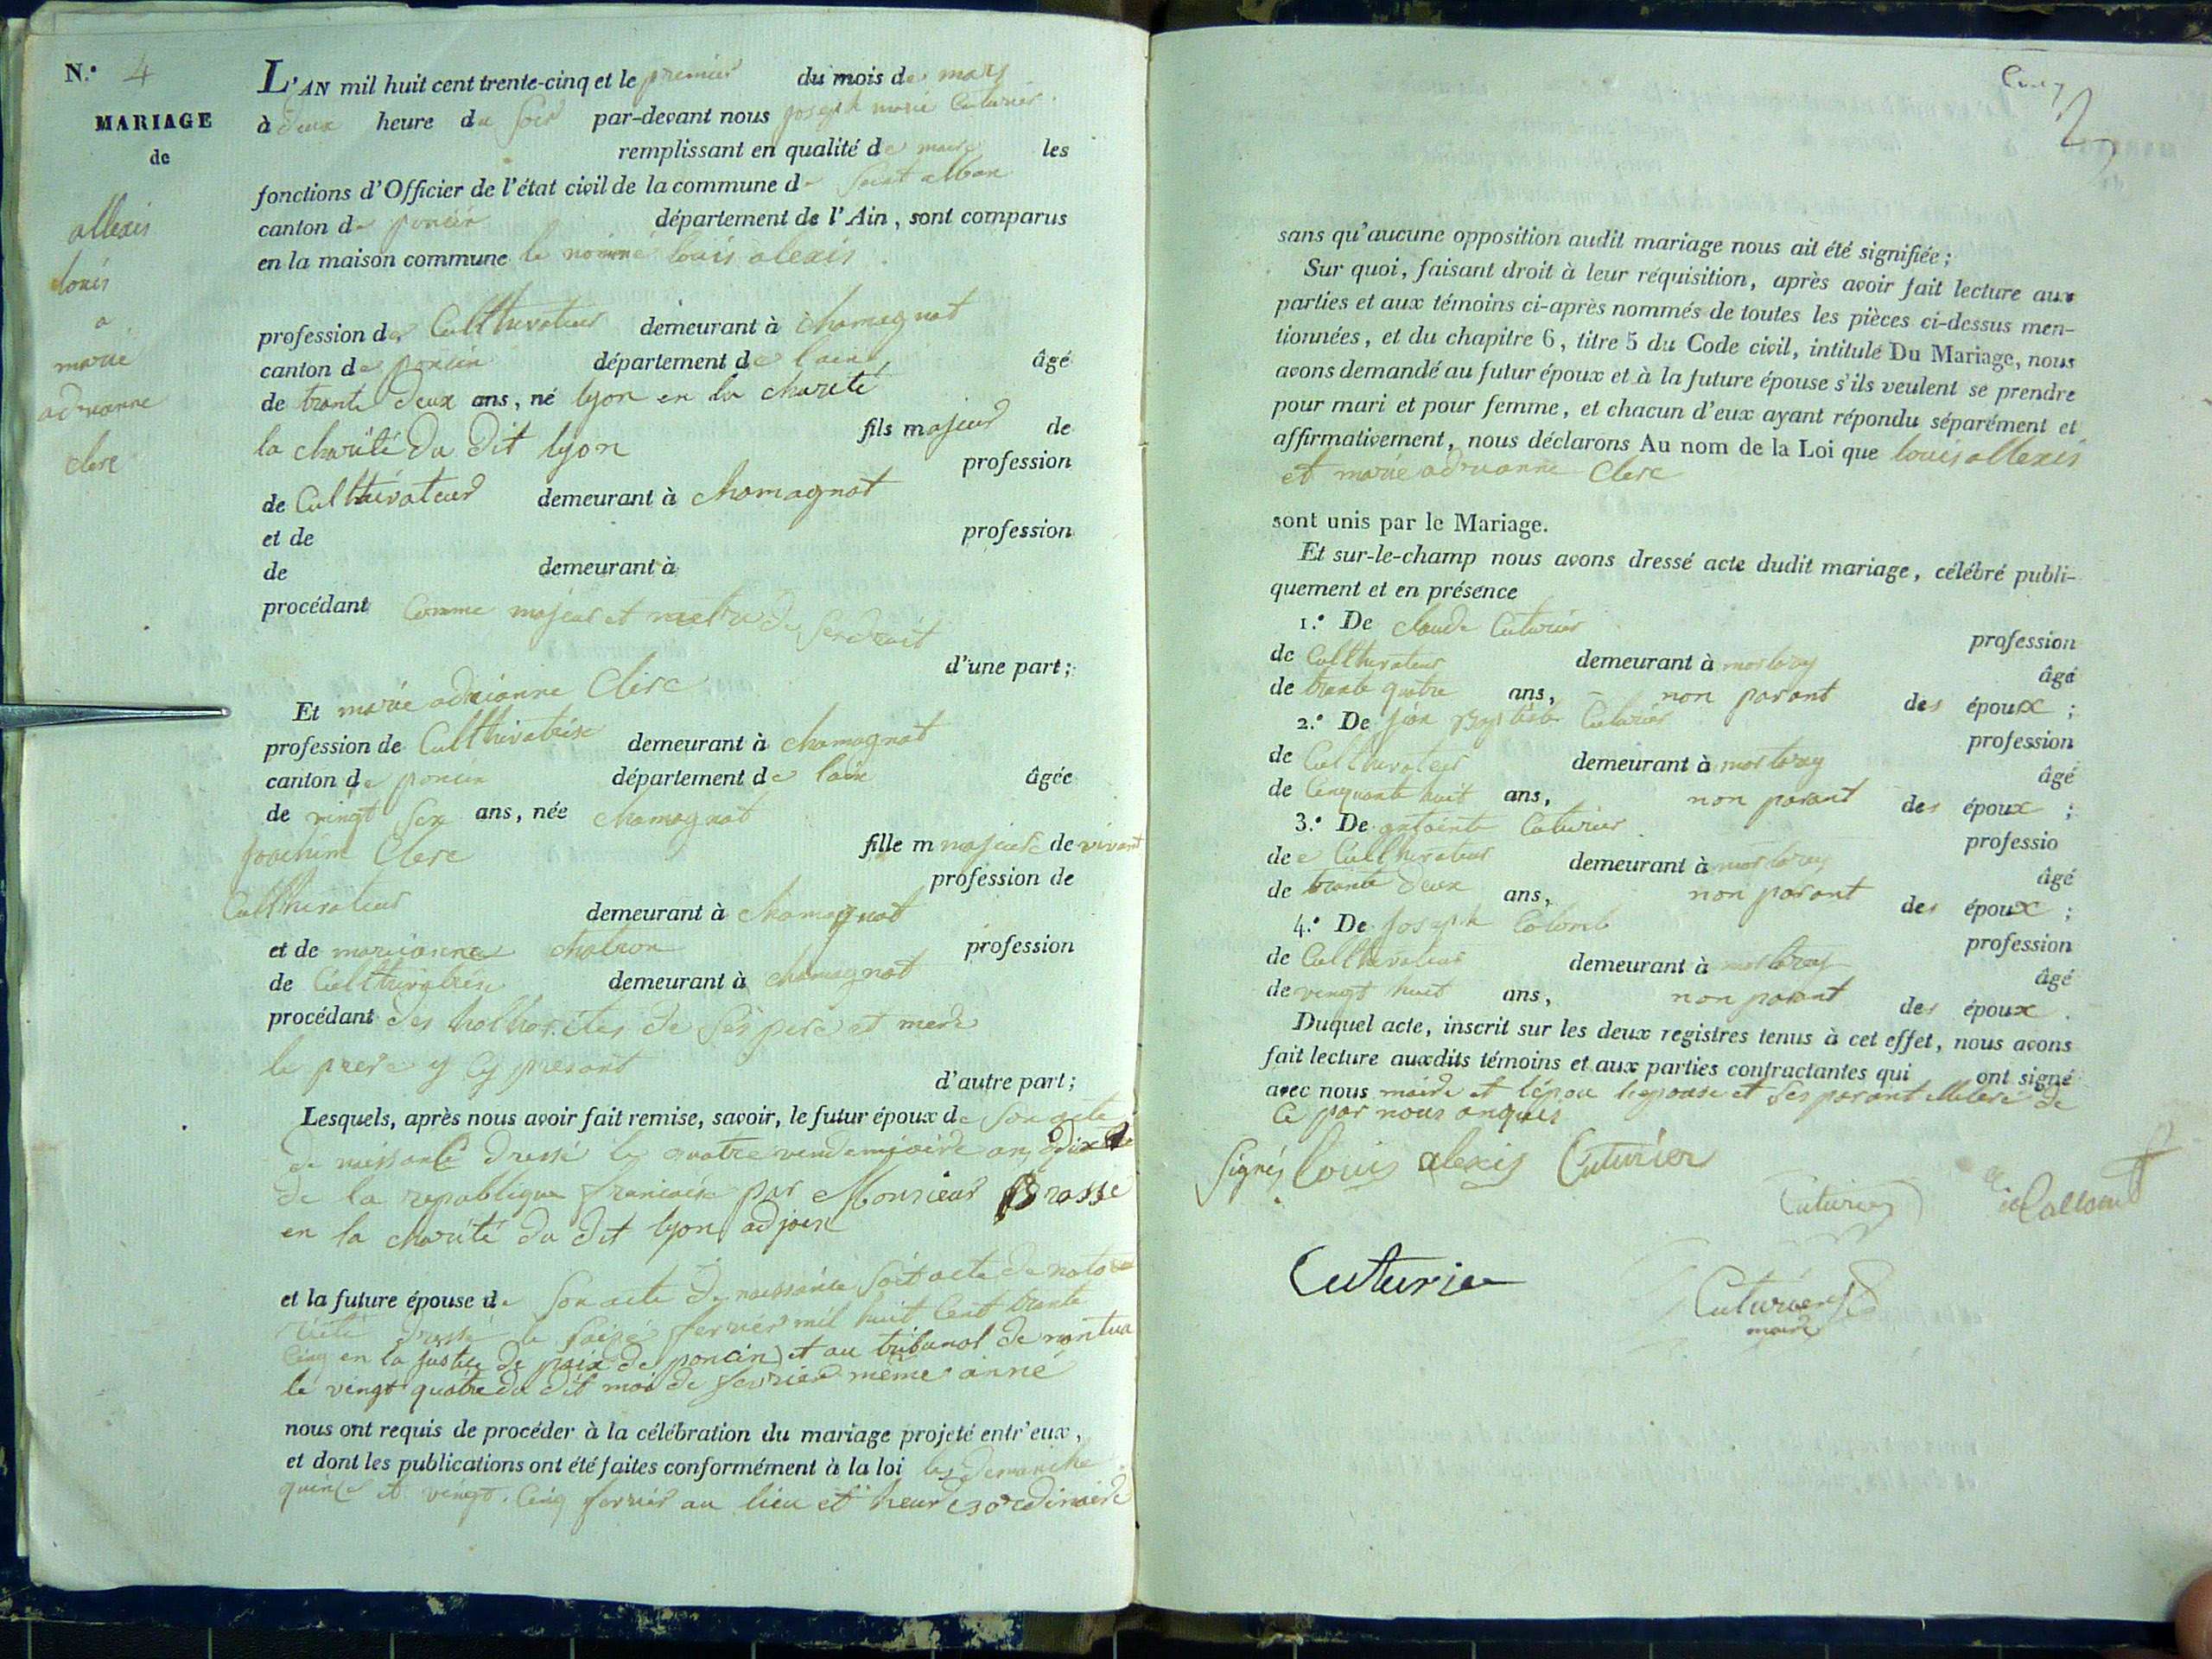 N.º 4
MARIAGE
de
allexis
louis
a
marie
adrianne
clerc
L'AN mil huit cent trente-cinq et le premier du mois de mars
à deux heure du soir par-devant nous joseph marie Cuturier
remplissant en qualité de maire les
fonctions d'Officier de l'état civil de la commune de saint alban
canton de poncin département de l'Ain, sont comparus
en la maison commune le nommé louis alexis
profession de Culthivateur demeurant à chamagnat
canton de poncin département de lain âgé
de trante deux ans, né lyon en la charité
la charité du dit lyon fils majeur de
profession
de Culthivateur demeurant à chamagnat
et de profession
de demeurant à
procédant Comme majeur et de
d'une part;
Et marie adrianne Clerc
profession de Culthivatrise demeurant à chamagnat
canton de poncin département de lain âgée
de vingt six ans, née chamagnat
joachim Clerc fille m majeure de vivant
profession de
Culthivateur demeurant à chamagnat
et de marianne chatron profession
de Culthivatrise demeurant à chamagnat
procédant des de ses pere et mere
le y cy presant
d'autre part;
Lesquels, après nous avoir fait remise, savoir, le futur époux de son acte
de naissance dressé le quatre vendemiaire an dix
de la republique francaise par Monsieur Brosse
en la charité du dit lyon adjoin
et la future épouse de son acte de naissance soit acte de noto
riété dressé le saize fevrier mil huit Cent trante
Cinq en la justice de paix de poncin et au tribunal de nantua
le vingt quatre du dit moi de fevrier même anné
nous ont requis de procéder à la célébration du mariage projeté entr'eux,
et dont les publications ont été faites conformément à la loi les demanche
quinse et vingt Cinq fevrier au lieu et heure ordinaire
Cinq
sans qu'aucune opposition audit mariage nous ait été signifiée;
Sur quoi, faisant droit à leur réquisition, après avoir fait lecture aux
parties et aux témoins ci-après nommés de toutes les pièces ci-dessus men-
tionnées, et du chapitre 6, titre 5 du Code civil, intitulé Du Mariage, nous
avons demandé au futur époux et à la future épouse s'ils veulent se prendre
pour mari et pour femme, et chacun d'eux ayant répondu séparément et
affirmativement, nous déclarons Au nom de la Loi que louis allexis
et marie adrianne Clerc
sont unis par le Mariage.
Et sur-le-champ nous avons dressé acte dudit mariage, célébré publi-
quement et en présence
1.º De claude Cuturier
profession
de Culthivateur demeurant à mortarey
âgé
de trante quatre ans, non parant des époux ;
2.º De jean Cuturier
profession
de Culthivateur demeurant à mortarey
âgé
de Cinquante huit ans, non parant des époux ;
3.º De antointe Cuturier
professio
de e Culthivateur demeurant à mortarey
âgé
de trante deux ans, non parant des époux ;
4.º De joseph Colomb
profession
de Culthivateur demeurant à mortarey
âgé
de vingt huit ans, non parant des époux .
Duquel acte, inscrit sur les deux registres tenus à cet effet, nous avons
fait lecture auxdits témoins et aux parties contractantes qui ont signé
avec nous maire et et ses parant de
ce par nous anquis
signés louis alexis Cuturier
Cuturier
Cuturier
Cuturier
maire